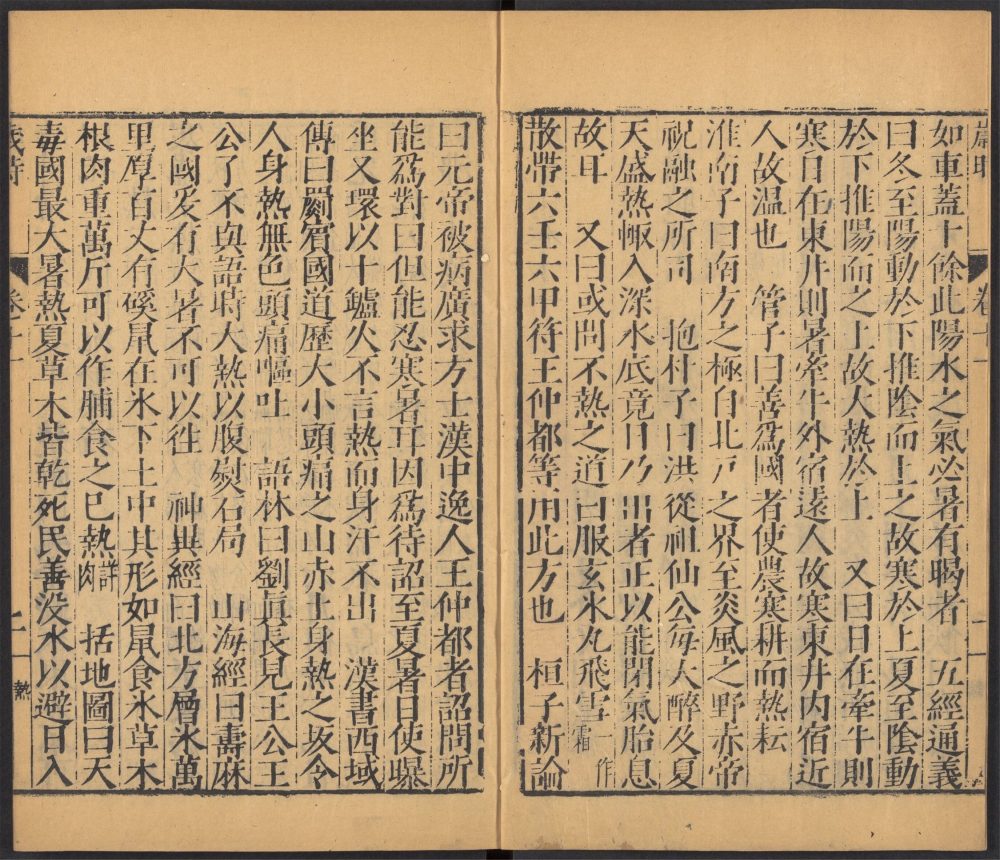 歲時
卷十一
如車蓋十餘此陽水之氣必暑有暍者　五經通義
曰冬至陽動於下推陰而上之故寒於上夏至陰動
於下推陽而之上故大熱於上　又曰日在牽牛則
寒日在東井則暑牽牛外宿遠人故寒東井内宿近
人故温也　管子曰善爲國者使農寒耕而熱耘
淮南子曰南方之極自北戸之界至炎風之野赤帝
祝融之所司　抱朴子曰洪從祖仙公每大醉及夏
天盛熱輙入深水底竟日乃出者正以能閉氣胎息
故耳　又曰或問不熱之道曰服玄氷丸飛雪一作霜
散帶六壬六甲符王仲都等用此方也　桓子新論
曰元帝被病廣求方士漢中逸人王仲都者詔問所
能爲對曰但能忍寒暑耳因爲待詔至夏暑日使曝
坐又環以十鑪火不言熱而身汗不出　漢書西域
傳曰罽賓國道歷大小頭痛之山赤土身熱之坂令
人身熱無色頭痛嘔吐　語林曰劉眞長見王公王
公了不與語時大熱以腹熨石局　山海經曰壽麻
之國爰有大暑不可以徃　神異經曰北方層氷萬
里厚百丈有磎䑕在氷下土中其形如䑕食氷草木
根肉重萬斤可以作脯食之已熱詳肉　括地圖曰天
毒國最大暑熱夏草木皆乾死民善沒水以避日入
歲時
卷十一
熱